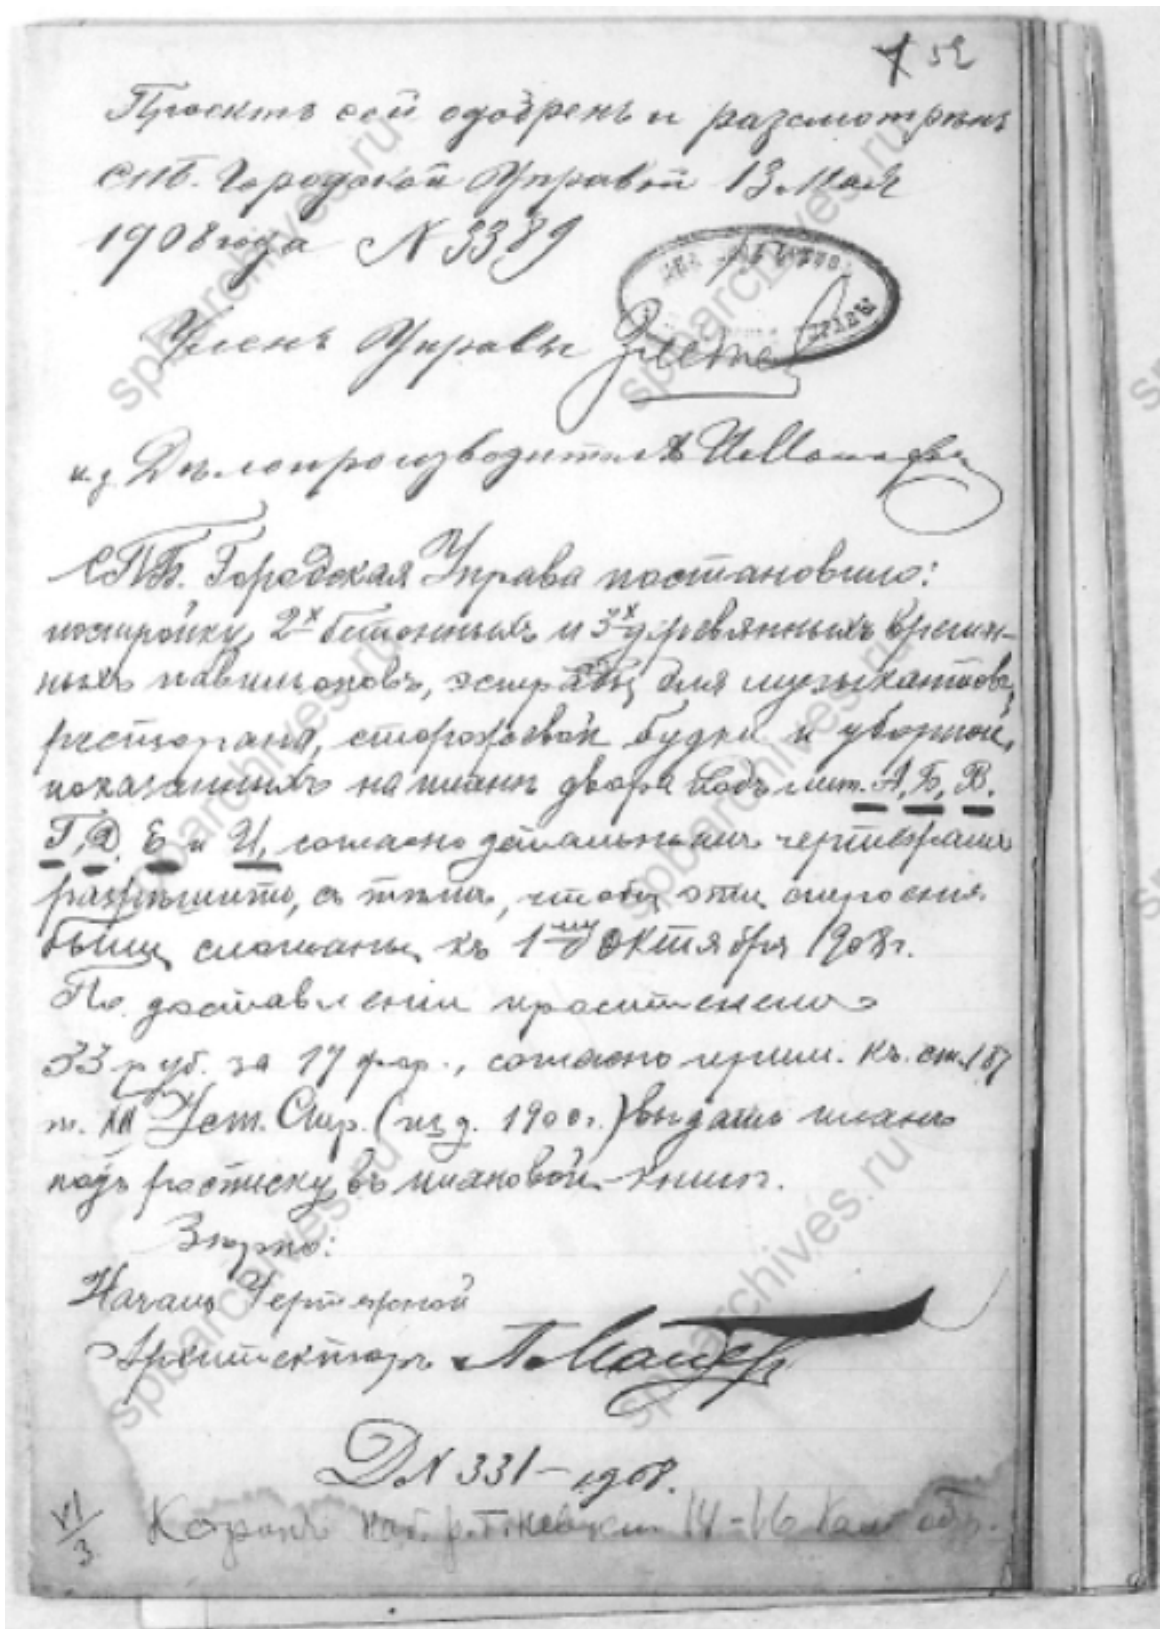 52
Проектъ сей одобренъ и разсмотрѣнъ
СПб. Городской Управой 13 Мая
1908 года N 3389
Членъ Управы
и.д. Дѣлопроизводителя
СПБ. Городская Управа постановила:
постройку 2х бетонныхъ и 3х деревянныхъ времен-
ныхъ павильоновъ, эстрады для музыкантовъ,
ресторана, сторожевой будки и уборной,
показанныхъ на планѣ двора подъ лит. А, Б, В.
Г, Д, Е и И, согласно детальнымъ чертежамъ
разрѣшить, съ тѣмъ, чтобы эти строенія
были сломаны къ 1му Октября 1908 г.
По доставленіи просителемъ
33 руб. за 17 фор., согласно прим. къ ст. 187
т. XII Уст. Стр. (изд. 1900 г.) выдать планъ
подъ росписку въ плановой книгѣ.
Вѣрно:
Началь Чертежной
Архитекторъ
Д N 331 – 1908.
VI/3 наб. р. Б. Невки 14-16
spbarchives.ru
spbarchives.ru
spbarchives.ru
spbarchives.ru
spbarchives.ru
spbarchives.ru